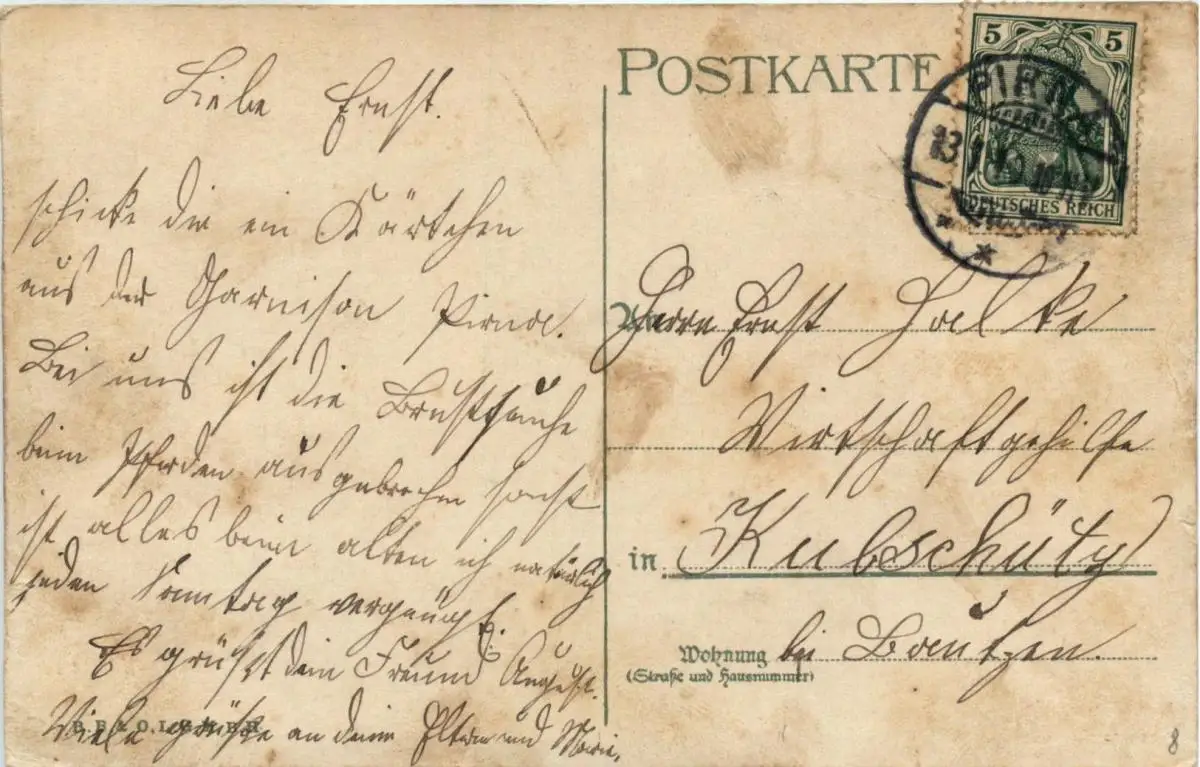 Liebe Ernst.
schicke dir ein Kärtchen
aus der Garnison Pirna.
Bei uns ist die Brustseuche
beim Pferden ausgebrochen sonst
ist alles beim alten ich natürlich
jeden Sonntag vergnügt.
Es grüßt dein Freund August.
Viele grüße an deine Eltern und Marie.
POSTKARTE
5 5
DEUTSCHES REICH
PIRNA
13.
An
Herrn Ernst Halke
Wirtschaftgehilfe
in Kubschütz
bei Bautzen.
Wohnung
(Straße und Hausnummer)
8